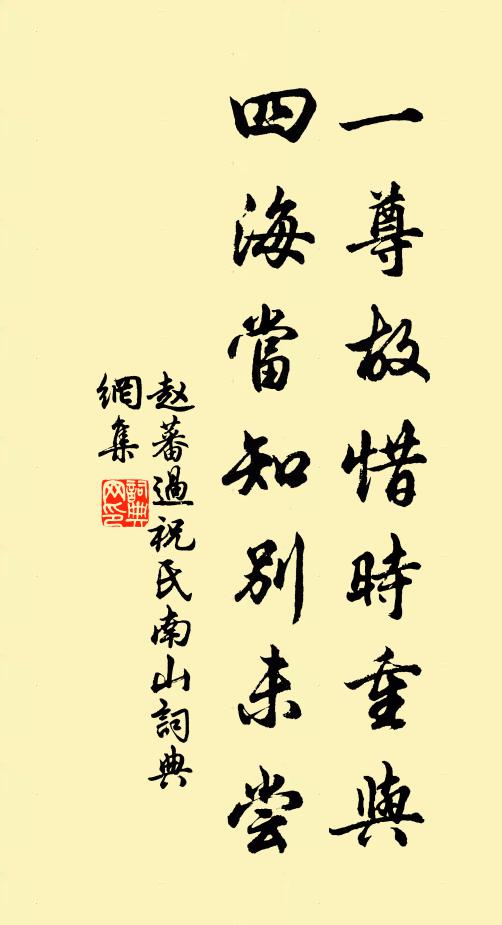 一尊故惜時重與
四海當知別未尝
赵蕃過祝氏南山詞典
網集
詞典
网印